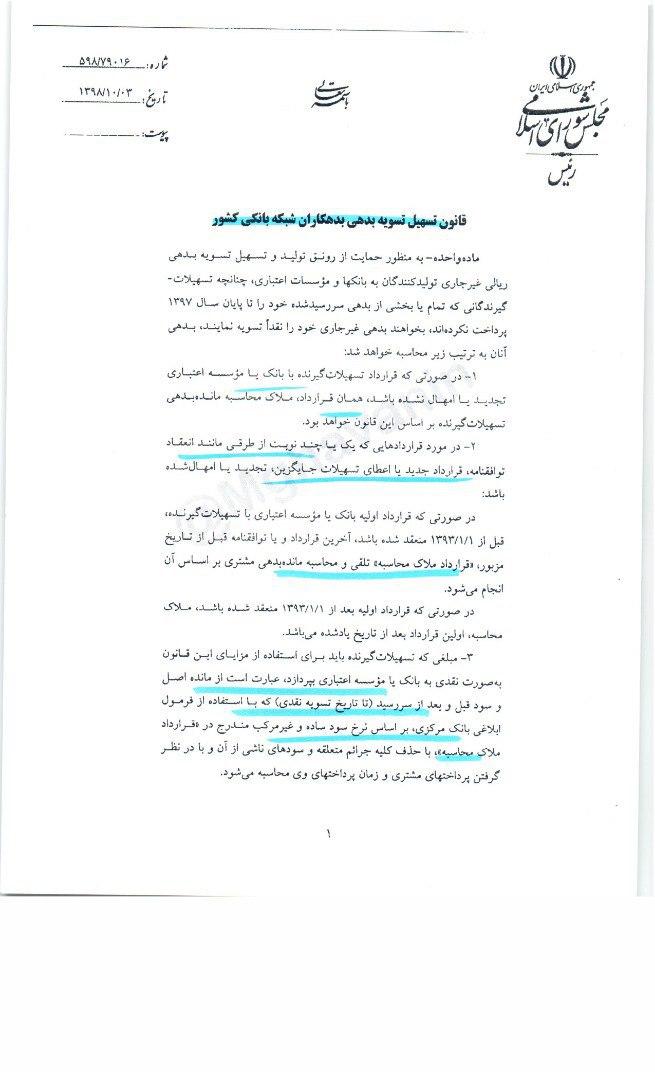 جمهوری اسلامی ایران
مجلس شورای اسلامی
رئیس
باسمه تعالی
شماره: ۵۹۸/۷۹۰۱۶
تاریخ: ۱۳۹۸/۱۰/۰۳
پیوست:
قانون تسهیل تسویه بدهی بدهکاران شبکه بانکی کشور
ماده‌واحده- به منظور حمایت از رونق تولید و تسهیل تسویه بدهی
ریالی غیرجاری تولیدکنندگان به بانکها و مؤسسات اعتباری، چنانچه تسهیلات-
گیرندگانی که تمام یا بخشی از بدهی سررسیدشده خود را تا پایان سال ۱۳۹۷
پرداخت نکرده‌اند، بخواهند بدهی غیرجاری خود را نقداً تسویه نمایند، بدهی
آنان به ترتیب زیر محاسبه خواهد شد:
۱- در صورتی که قرارداد تسهیلات‌گیرنده با بانک یا مؤسسه اعتباری
تجدید یا امهال نشده باشد، همان قرارداد، ملاک محاسبه مانده‌بدهی
تسهیلات‌گیرنده بر اساس این قانون خواهد بود.
۲- در مورد قراردادهایی که یک یا چند نوبت از طرقی مانند انعقاد
توافقنامه، قرارداد جدید یا اعطای تسهیلات جایگزین، تجدید یا امهال‌شده
باشد:
در صورتی که قرارداد اولیه بانک یا مؤسسه اعتباری با تسهیلات‌گیرنده،
قبل از ۱۳۹۳/۱/۱ منعقد شده باشد، آخرین قرارداد و یا توافقنامه قبل از تاریخ
مزبور، «قرارداد ملاک محاسبه» تلقی و محاسبه مانده‌بدهی مشتری بر اساس آن
انجام می‌شود.
در صورتی که قرارداد اولیه بعد از ۱۳۹۳/۱/۱ منعقد شده باشد، ملاک
محاسبه، اولین قرارداد بعد از تاریخ یادشده می‌باشد.
۳- مبلغی که تسهیلات‌گیرنده باید برای استفاده از مزایای این قانون
به‌صورت نقدی به بانک یا مؤسسه اعتباری بپردازد، عبارت است از مانده اصل
و سود قبل و بعد از سررسید (تا تاریخ تسویه نقدی) که با استفاده از فرمول
ابلاغی بانک مرکزی، بر اساس نرخ سود ساده و غیرمرکب مندرج در «قرارداد
ملاک محاسبه»، با حذف کلیه جرائم متعلقه و سودهای ناشی از آن و با در نظر
گرفتن پرداختهای مشتری و زمان پرداختهای وی محاسبه می‌شود.
۱